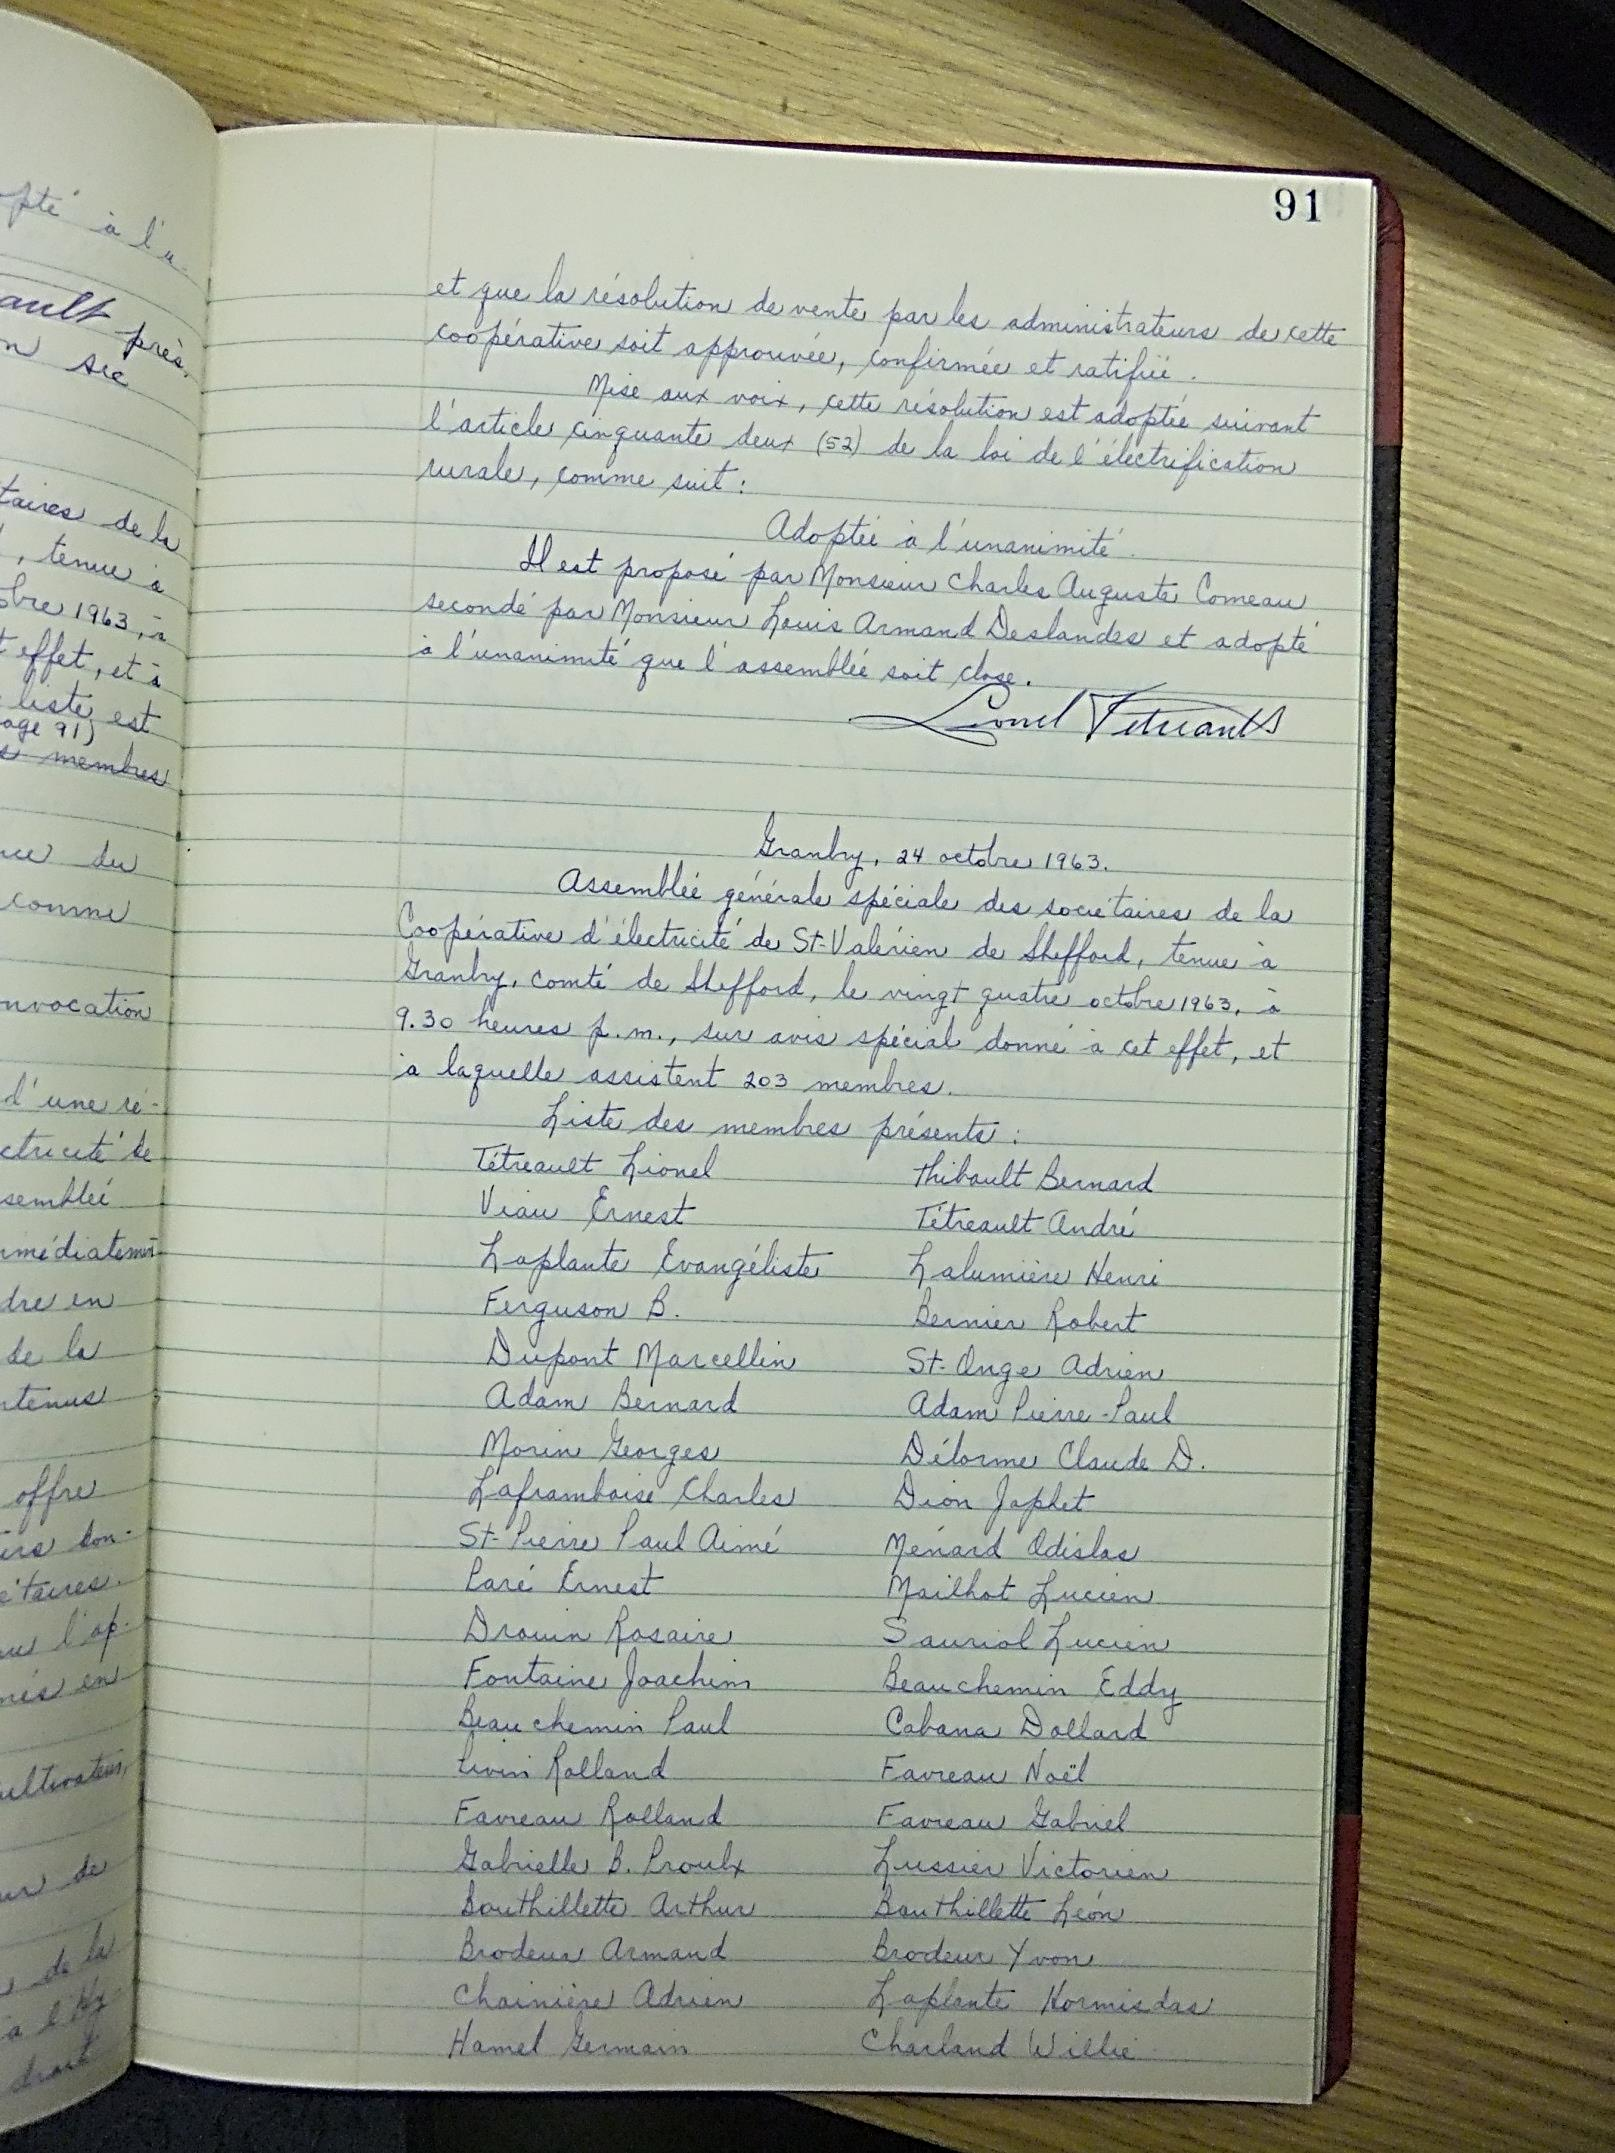 opté à l'u-
ault prés.
n sec
taires de la
, tenue à
obre 1963, à
t effet, et à
liste est
age 91)
s membres
nce du
comme
onvocation
d'une ré-
ctricité de
semblée
médiatement
dre en
de la
ntenus
offre
irs son-
étaires.
ou l'ap-
nés en
ultivateur,
ur de
de la
à l'Hy-
droit
91
et que la résolution de vente par les administrateurs de cette
coopérative soit approuvée, confirmée et ratifiée.
Mise aux voix, cette résolution est adoptée suivant
l'article cinquante deux (52) de la loi de l'électrification
rurale, comme suit :
Adoptée à l'unanimité.
Il est proposé par Monsieur Charles Auguste Comeau
secondé par Monsieur Louis Armand Deslandes et adopté
à l'unanimité que l'assemblée soit close.
Lionel Tétreault
Granby, 24 octobre 1963.
Assemblée générale spéciale des sociétaires de la
Coopérative d'électricité de St-Valérien de Shefford, tenue à
Granby, comté de Shefford, le vingt quatre octobre 1963, à
9.30 heures p.m., sur avis spécial donné à cet effet, et
à laquelle assistent 203 membres.
Liste des membres présents :
Tétreault Lionel Thibault Bernard
Viau Ernest Tétreault André
Laplante Evangéliste Lalumière Henri
Ferguson B. Bernier Robert
Dupont Marcellin St-Onge Adrien
Adam Bernard Adam Pierre-Paul
Morin Georges Délorme Claude D.
Laframboise Charles Dion Japhet
St-Pierre Paul Aimé Ménard Odislas
Paré Ernest Mailhot Lucien
Drouin Rosaire Sauriol Lucien
Fontaine Joachim Beauchemin Eddy
Beauchemin Paul Cabana Dollard
Rolland Favreau Noël
Favreau Rolland Favreau Gabriel
Gabrielle B. Proulx Lussier Victorien
Bouthillette Arthur Bouthillette Léon
Brodeur Armand Brodeur Yvon
Chainière Adrien Laplante Hormisdas
Hamel Germain Charland Willie